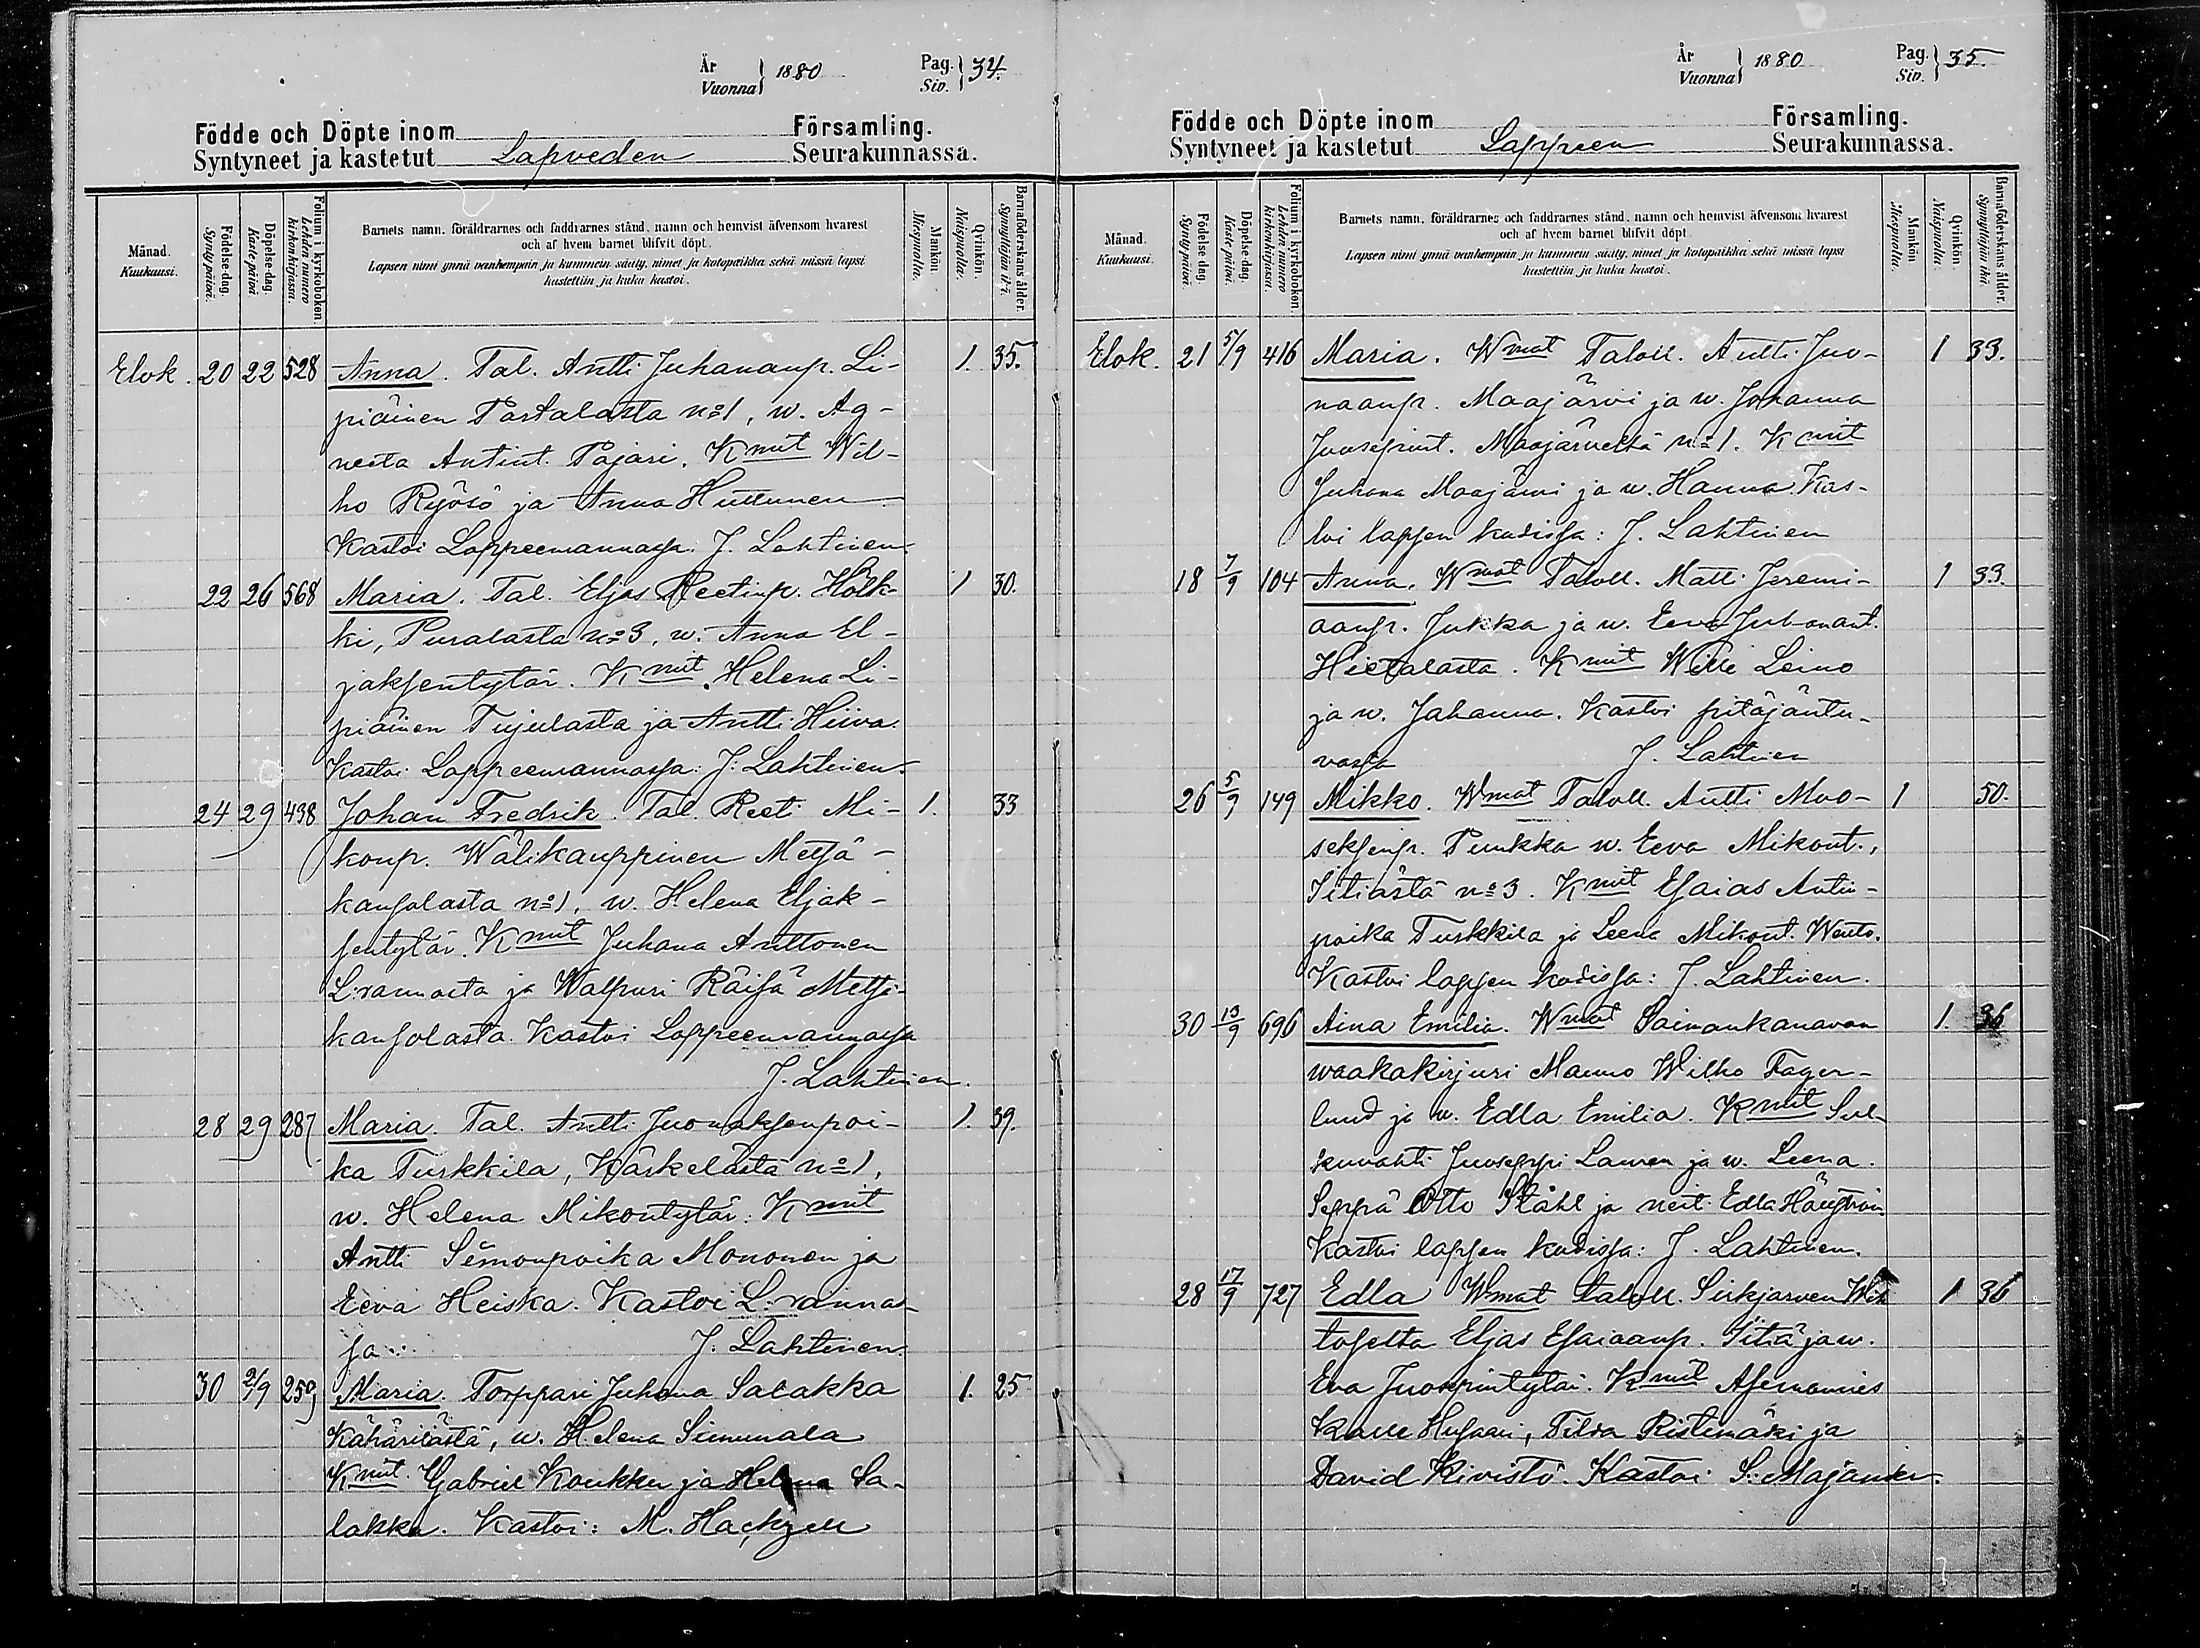 År
Vuonna } 1880 Pag.
Siv. } 34.
Födde och Döpte inom Församling.
Syntyneet ja kastetut Lapveden Seurakunnassa.
Månad.
Kuukausi.
Födelse-dag.
Syntypäivä.
Döpelse-dag.
Kastepäivä
Folium i kyrkoboken.
Lehden numero
kirkonkirjassa.
Barnets namn, föräldrarnes och faddrarnes stånd, namn och hemvist äfvensom hvarest
och af hvem barnet blifvit döpt.
Lapsen nimi ynnä vanhempain ja kummein sääty, nimet ja kotopaikka sekä missä lapsi
kastettiin ja kuka kastoi.
Mankön.
Miespuolia.
Qvinkön.
Naispuolia.
Barnaföderskans ålder.
Synnyttäjän ikä.
Elok. 20 22 528 Anna. Tal. Antti Juhananp. Li- 1. 35.
piäinen Partalasta n:o 1, w. Ag-
neeta Antint. Pajari. Kmit Wil-
ho Ryösö ja Anna Huttunen
Kastoi Lappeenrannassa: J. Lahtinen
22 26 568 Maria. Tal. Eljas Reetinp. Hölk- 1 30.
ki, Puralasta n:o 3, w. Anna El-
jaksentytär. Kmit Helena Li-
piäinen Tujulasta ja Antti Hiiva.
Kastoi Lappeenrannassa: J. Lahtinen.
24 29 438 Johan Fredrik. Tal. Reeti Mi- 1. 33
konp. Wälikauppinen Metsä-
kansolasta n:o 1, w. Helena Eljak-
sentytär. Kmit Juhana Anttonen
L:rannasta ja Walpuri Räisä Metsä-
kansolasta. Kastoi Lappeenrannassa
J. Lahtinen.
28 29 287 Maria. Tal. Antti Juonaksenpoi- 1. 39.
ka Turkkila, Käskelästä n:o 1,
w. Helena Mikontytär: Kmit
Antti Simonpoika Mononen ja
Eeva Heiska. Kastoi L:rannas-
sa: J. Lahtinen.
30 2/9 259 Maria. Torppari Juhana Salakka 1. 25
Kähärilästä, w. Helena Simumala
Kmit. Gabriel Koukku ja Helena Sa-
lakka. Kastoi: M. Hackzell
År
Vuonna } 1880 Pag.
Siv. } 35.
Födde och Döpte inom Församling.
Syntyneet ja kastetut Lappeen Seurakunnassa.
Månad.
Kuukausi.
Födelse-dag.
Syntypäivä.
Döpelse-dag.
Kastepäivä.
Folium i kyrkoboken.
Lehden numero
kirkonkirjassa.
Barnets namn, föräldrarnes och faddrarnes stånd, namn och hemvist äfvensom hvarest
och af hvem barnet blifvit döpt.
Lapsen nimi ynnä vanhempain ja kummein sääty, nimet ja kotopaikka sekä missä lapsi
kastettiin ja kuka kastoi.
Mankön
Miespuolia.
Qvinkön.
Naispuolia.
Barnaföderskans ålder.
Synnyttäjän ikä.
Elok. 21 5/9 416 Maria. Wmat Taloll. Antti Juo- 1 33.
naanp. Maajärvi ja w. Johanna
Juusepint. Maajärveltä n:o 1. Kmit
Juhana Maajärvi ja w. Hanna. Kas-
toi lapsen kodissa: J. Lahtinen
18 7/9 104 Anna. Wmat Taloll. Matt. Jeremi- 1 33.
aanp. Jukka ja w. Eeva Juhanant.
Hietalasta. Kmit Wille Leino
ja w. Johanna. Kastoi pitäjäntu-
vassa J. Lahtinen
26 5/9 149 Mikko. Wmat Taloll. Antti Moo- 1 50.
seksenp. Punkka w. Eeva Mikont.,
Itiästä n:o 3. Kmit Esaias Antin-
poika Turkkila ja Leena Mikont. Wento.
Kastoi lapsen kodissa: J. Lahtinen.
30 13/9 696 Aina Emilia. Wmat Saimankanavan 1. 36
waakakirjuri Mauno Wilho Fager-
lund ja w. Edla Emilia. Kmit Sul-
kuvahti Juoseppi Lauren ja w. Leena.
Seppä Otto Ståhl ja neit. Edla
Kastoi lapsen kodissa: J. Lahtinen.
28 17/9 727 Edla Wmat taloll. Sirkjärven 1 36
Eljas Esaiaanp. Itiä ja w.
Eva Juosepintytär. Kmit Asemamies
Kalle Husaari, Tilda Ristimäki ja
David Kivistö. Kastoi S: Majander.